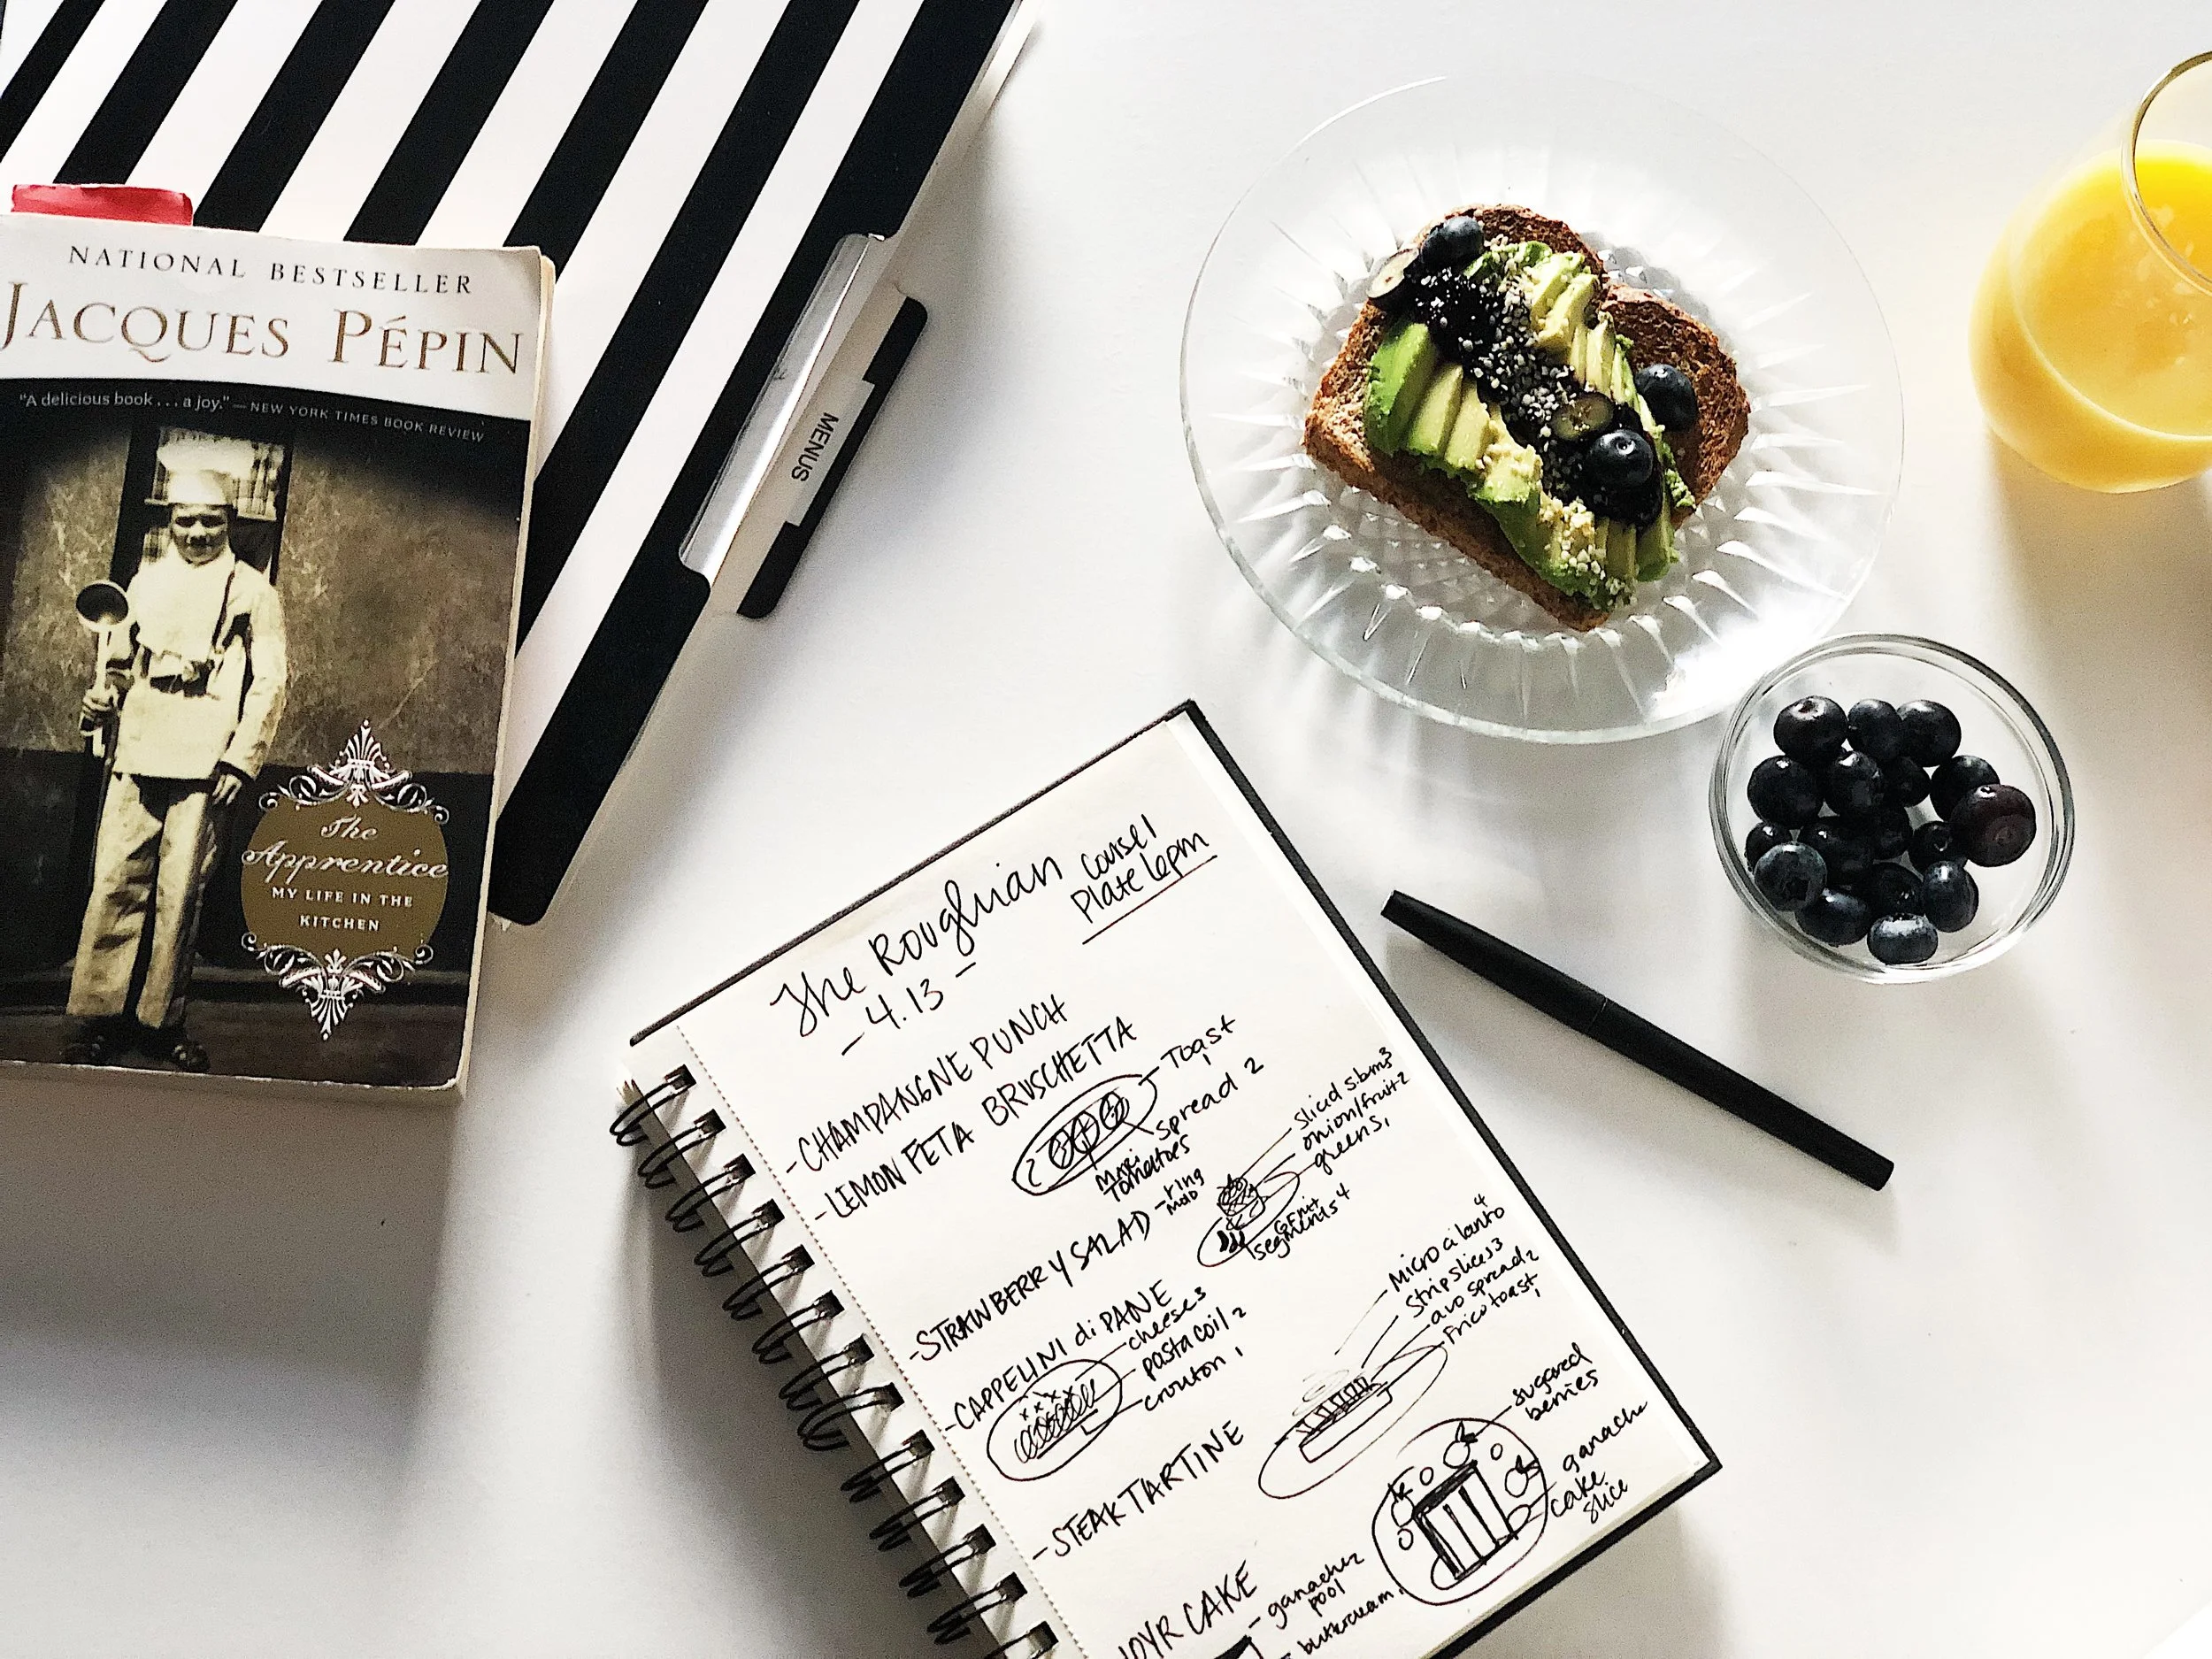 NATIONAL BESTSELLER
JACQUES PÉPIN
"A delicious book . . . a joy." — NEW YORK TIMES BOOK REVIEW
The
Apprentice
MY LIFE IN THE
KITCHEN
MENUS
The Roughian
- 4.13 -
Course 1
Plate 6pm
- CHAMPANGNE PUNCH
- LEMON FETA BRUSCHETTA
Toast
1
spread 2
tomatoes
- STRAWBERRY SALAD
- ring
sliced
onion/fruit 2
greens 1
segments 4
- CAPPELINI di PANE
cheese 3
pasta coil 2
crouton 1
- STEAK TARTINE
micro cilantro 4
strip slices 3
avo spread 2
frico toast 1
CAKE
sugared
berries
ganache
cake
slice
- ganache 2
pool
- buttercream 1